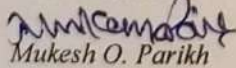 Mukesh O. Parikh